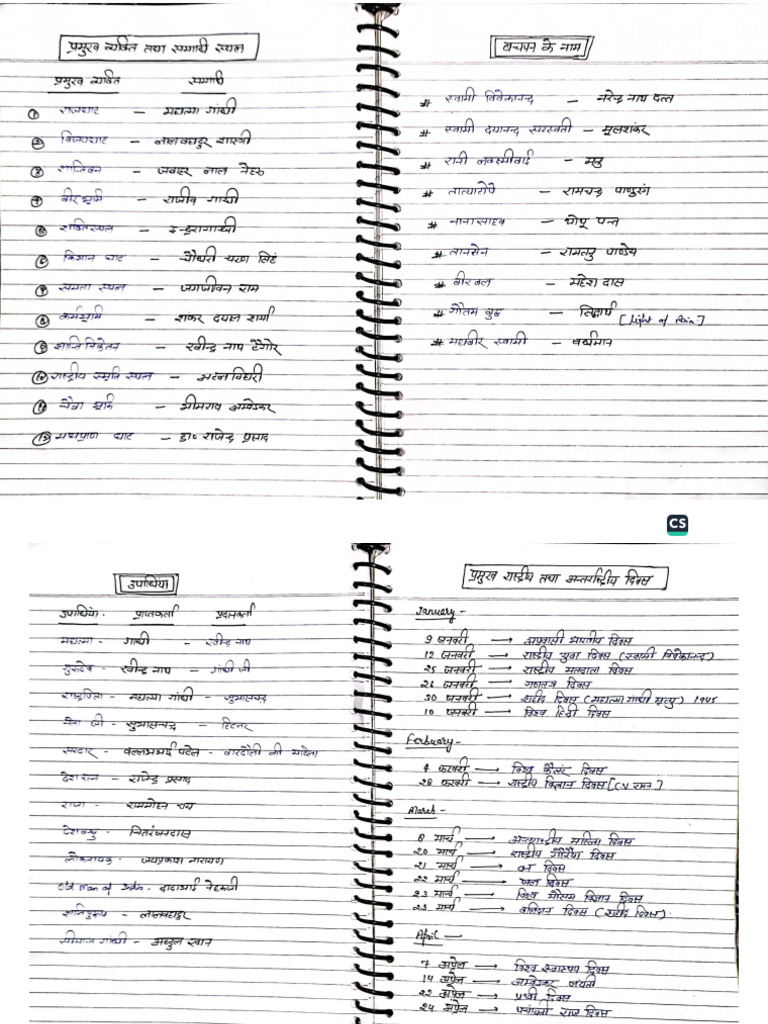 प्रमुख व्यक्ति तथा समाधी स्थल
प्रमुख व्यक्ति समाधी
① राजघाट – महात्मा गांधी
② विजयघाट – लालबहादुर शास्त्री
③ शान्तिवन – जवाहर लाल नेहरु
④ वीर भूमि – राजीव गांधी
⑤ शक्ति स्थल – इन्दुरागांधी
⑥ किसान घाट – चौधरी चरण सिंह
⑦ समता स्थल – जगजीवन राम
⑧ कर्मभूमि – शंकर दयाल शर्मा
⑨ शान्ति निकेतन – रवीन्द्र नाथ टैगोर
⑩ राष्ट्रीय स्मृति स्थल – अटल बिहारी
⑪ चैत्रा भूमि – भीमराव अम्बेडकर
⑫ महाप्राण घाट – डा० राजेन्द्र प्रसाद
बचपन के नाम
# स्वामी विवेकानन्द – नरेन्द्र नाथ दत्त
# स्वामी दयानन्द सरस्वती – मूलशंकर
# रानी लक्ष्मीबाई – मनु
# तात्याटोपे – रामचन्द्र पाण्डुरंग
# नानासाहब – धोंधू पन्त
# तानसेन – रामतनु पाण्डेय
# बीरबल – महेश दास
# गौतम बुद्ध – सिद्धार्थ [Light of Asia]
# महावीर स्वामी – वर्धमान
CS
उपाधियां
उपाधियां प्राप्तकर्ता प्रदानकर्ता
महात्मा – गांधी – रवीन्द्र नाथ
गुरुदेव – रवीन्द्र नाथ – गांधी जी
राष्ट्रपिता – महात्मा गांधी – सुभाषचन्द्र
नेता जी – सुभाषचन्द्र – हिटलर
सरदार – वल्लभभाई पटेल – बारदोली की महिला
देशरत्न – राजेन्द्र प्रसाद
राजा – राममोहन राय
देशबन्धु – चितरंजनदास
लोकनायक – जयप्रकाश नारायण
Old man of India – दादाभाई नैरोजी
शान्तिपुरुष – लालबहादुर
सीमान्त गांधी – अब्दुल खान
प्रमुख राष्ट्रीय तथा अन्तर्राष्ट्रीय दिवस
January –
9 जनवरी → अप्रवासी भारतीय दिवस
12 जनवरी → राष्ट्रीय युवा दिवस (स्वामी विवेकानन्द)
25 जनवरी → राष्ट्रीय मतदाता दिवस
26 जनवरी → गणतन्त्र दिवस
30 जनवरी → शहीद दिवस (महात्मा गांधी मृत्यु) 1948
10 जनवरी → विश्व हिंदी दिवस
Ferbuary –
4 फरवरी → विश्व कैंसर दिवस
28 फरवरी → राष्ट्रीय विज्ञान दिवस [C.V रमन]
March –
8 मार्च → अन्तराष्ट्रीय महिला दिवस
20 मार्च → राष्ट्रीय गौरैया दिवस
21 मार्च → वन दिवस
22 मार्च → जल दिवस
23 मार्च → विश्व मौसम विज्ञान दिवस
23 मार्च → बलिदान दिवस (शहीद दिवस).
April –
7 अप्रेल → विश्व स्वास्थ्य दिवस
14 अप्रेल → अम्बेडकर जयंती
22 अप्रेल → पृथ्वी दिवस
24 अप्रेल → पंचायती राज दिवस